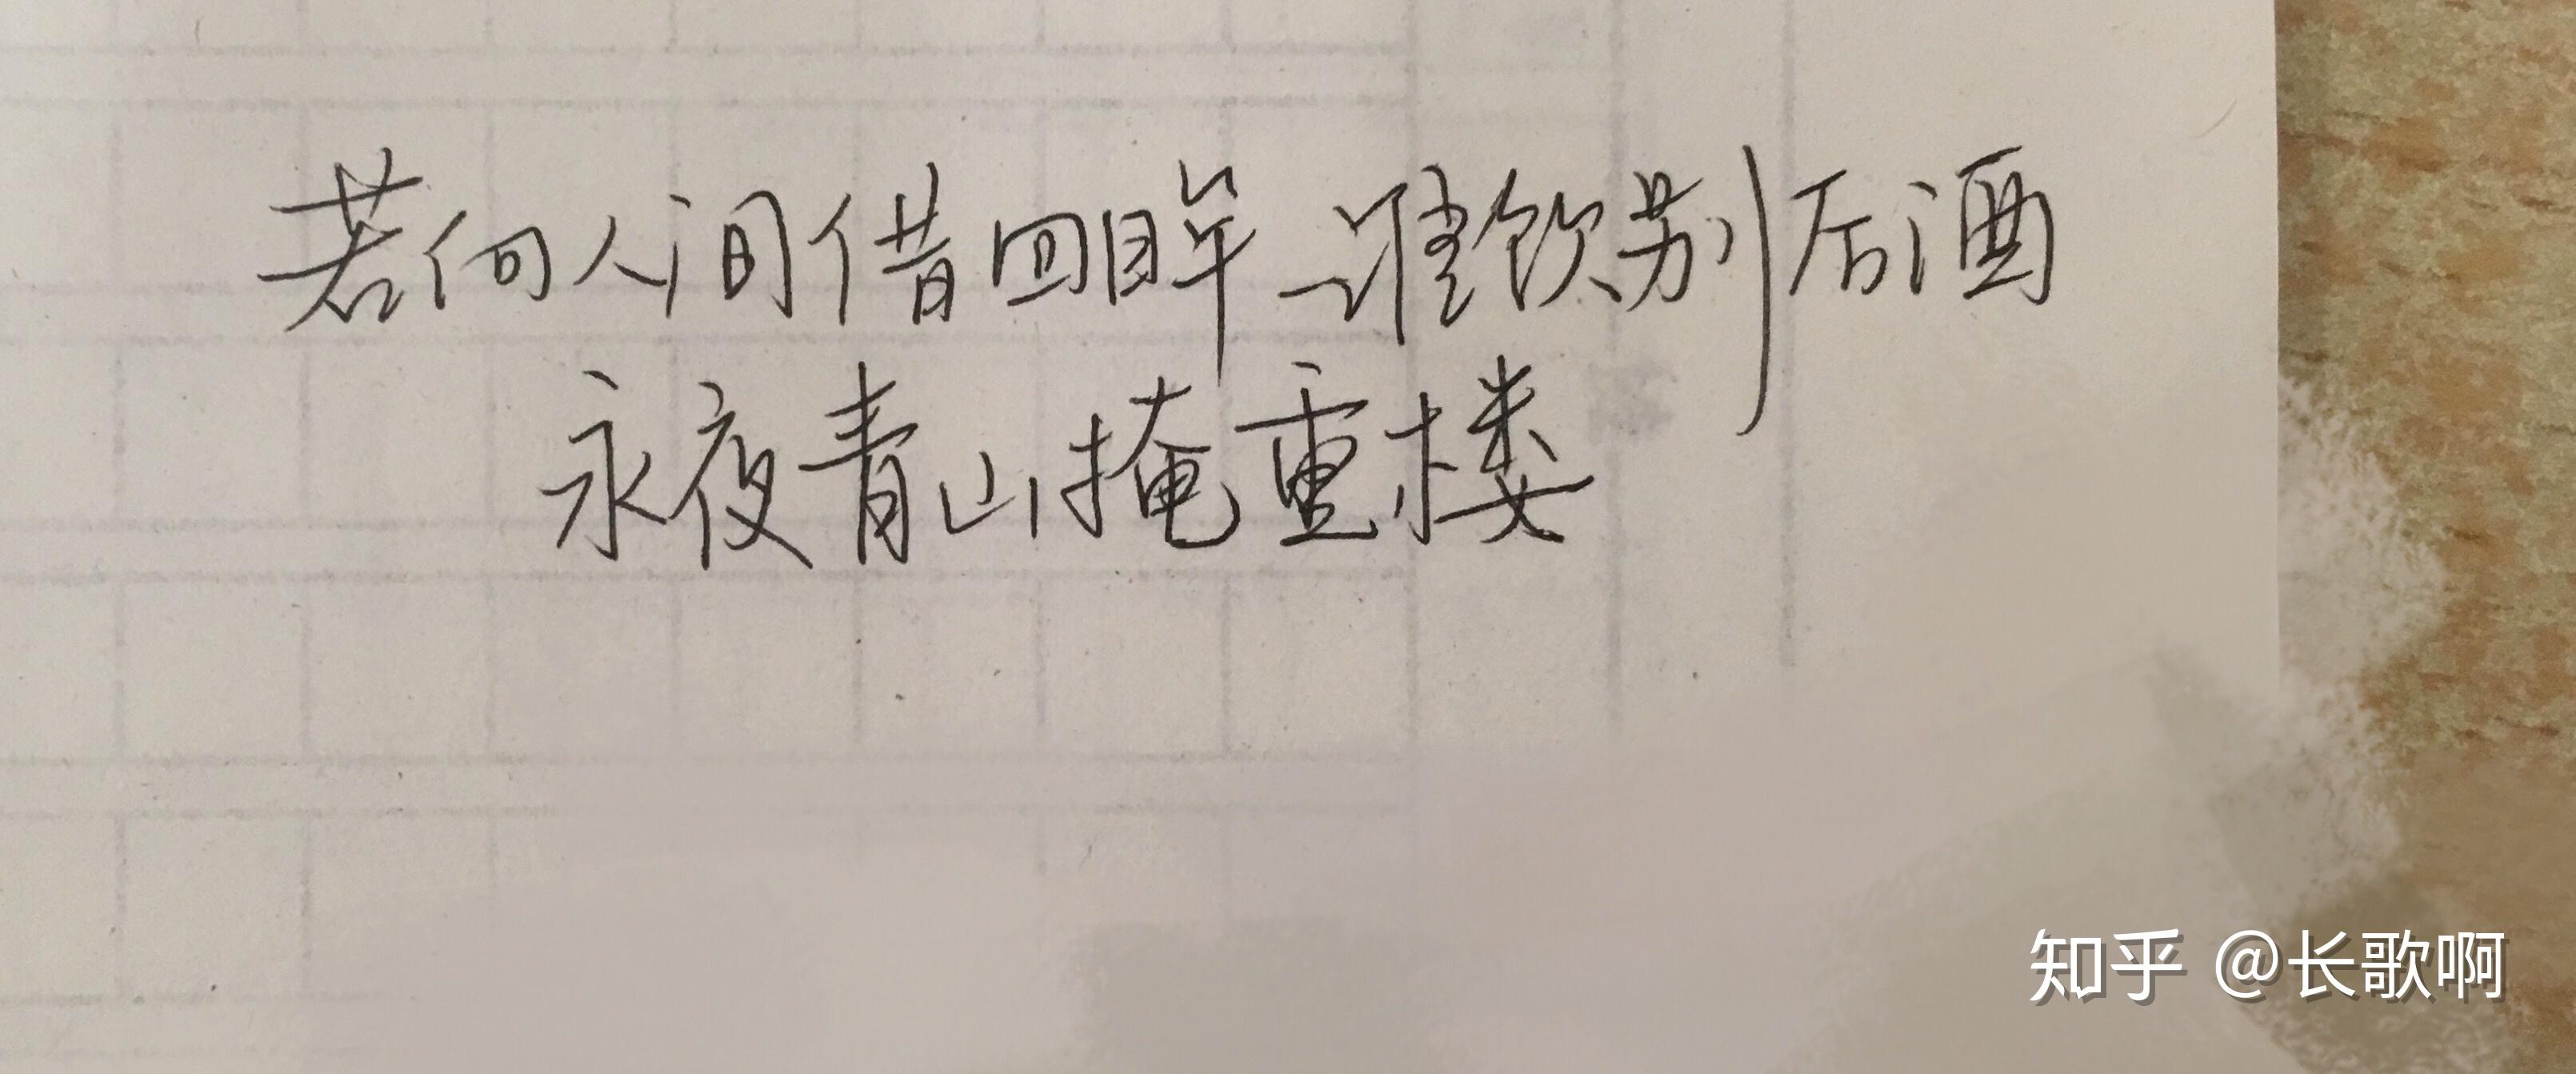 若向人间借回眸 谁饮别后酒
永夜青山掩重楼
知乎 @长歌啊